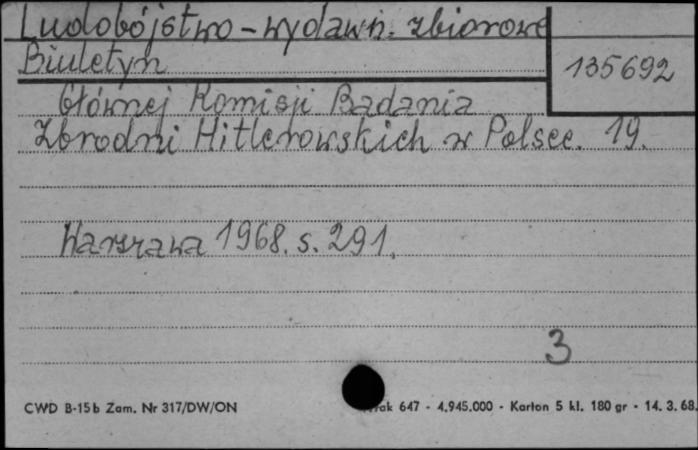 Ludobójstwo - wydawn. zbiorowe
Biuletyn
135692
Głównej Komisji Badania
Zbrodni Hitlerowskich w Polsce. 19.
Warszawa 1968. s. 291.
3
CWD B-15b Zam. Nr 317/DW/ON
647 - 4.945.000 - Karton 5 kl. 180 gr - 14. 3. 68.